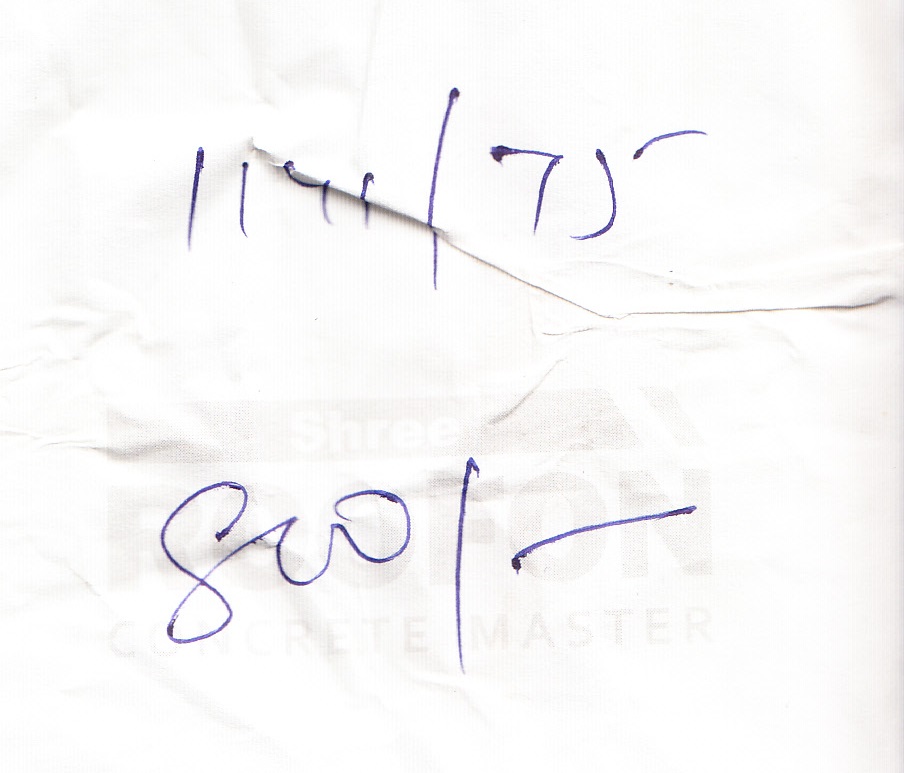 1141/75
Shree
800/-
ROOFON
CONCRETE MASTER